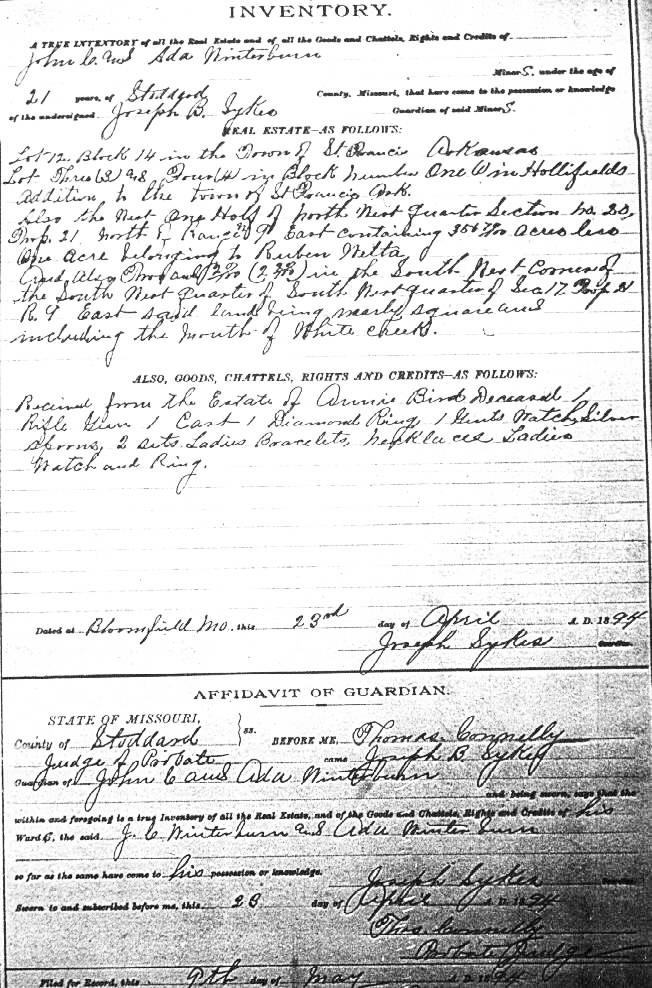 INVENTORY.
A TRUE INVENTORY of all the Real Estate and of all the Goods and Chattels, Rights and Credits of
John C. and Ada Winterburn
MinorS. under the age of
21 years, of Stoddard County, Missouri, that have come to the possession or knowledge
of the undersigned Joseph B. Sykes Guardian of said MinorS.
REAL ESTATE—AS FOLLOWS:
Lot 12. Block 14 in the Town of St Francis Arkansas
Lot Three (3) and Four (4) in Block Number One in Hollifields
addition to the town of St Francis Ark.
Also the West One Half of North West Quarter Section No. 20,
Twp. 21 North Range 9 East containing acres less
One Acre belonging to Ruben
And Also Two and (2 ) in the South West Corner of
the South West Quarter of South West quarter of Sec 17 Twp 21
R. 9 East said land being nearly square and
including the Mouth of White creek.
ALSO, GOODS, CHATTELS, RIGHTS AND CREDITS—AS FOLLOWS:
Recieved from the Estate of Annie Bird Deceased 1
Rifle Gun 1 1 Diamond Ring, 1 Gents Watch, Silver
Spoons, 2 sets Ladies Bracelets, Necklaces Ladies
Watch and Ring.
Dated at Bloomfield Mo. this 23rd day of April A. D. 1894
Joseph Sykes Guardian.
AFFIDAVIT OF GUARDIAN.
STATE OF MISSOURI,
County of Stoddard ss. BEFORE ME, Thomas Connelly
Judge of Probate came Joseph B Sykes
Guardian of John C and Ada Winterburn
and being sworn, says that the
within and foregoing is a true Inventory of all the Real Estate, and of the Goods and Chattels, Rights and Credits of his
WardS, the said J. C Winterburn and Ada Winterburn
so far as the same have come to his possession or knowledge. Joseph Sykes Guardian
Sworn to and subscribed before me, this 23 day of April A. D. 1894
Thos. Connelly
Probate Judge
Filed for Record, this 9th day of May A. D. 1894